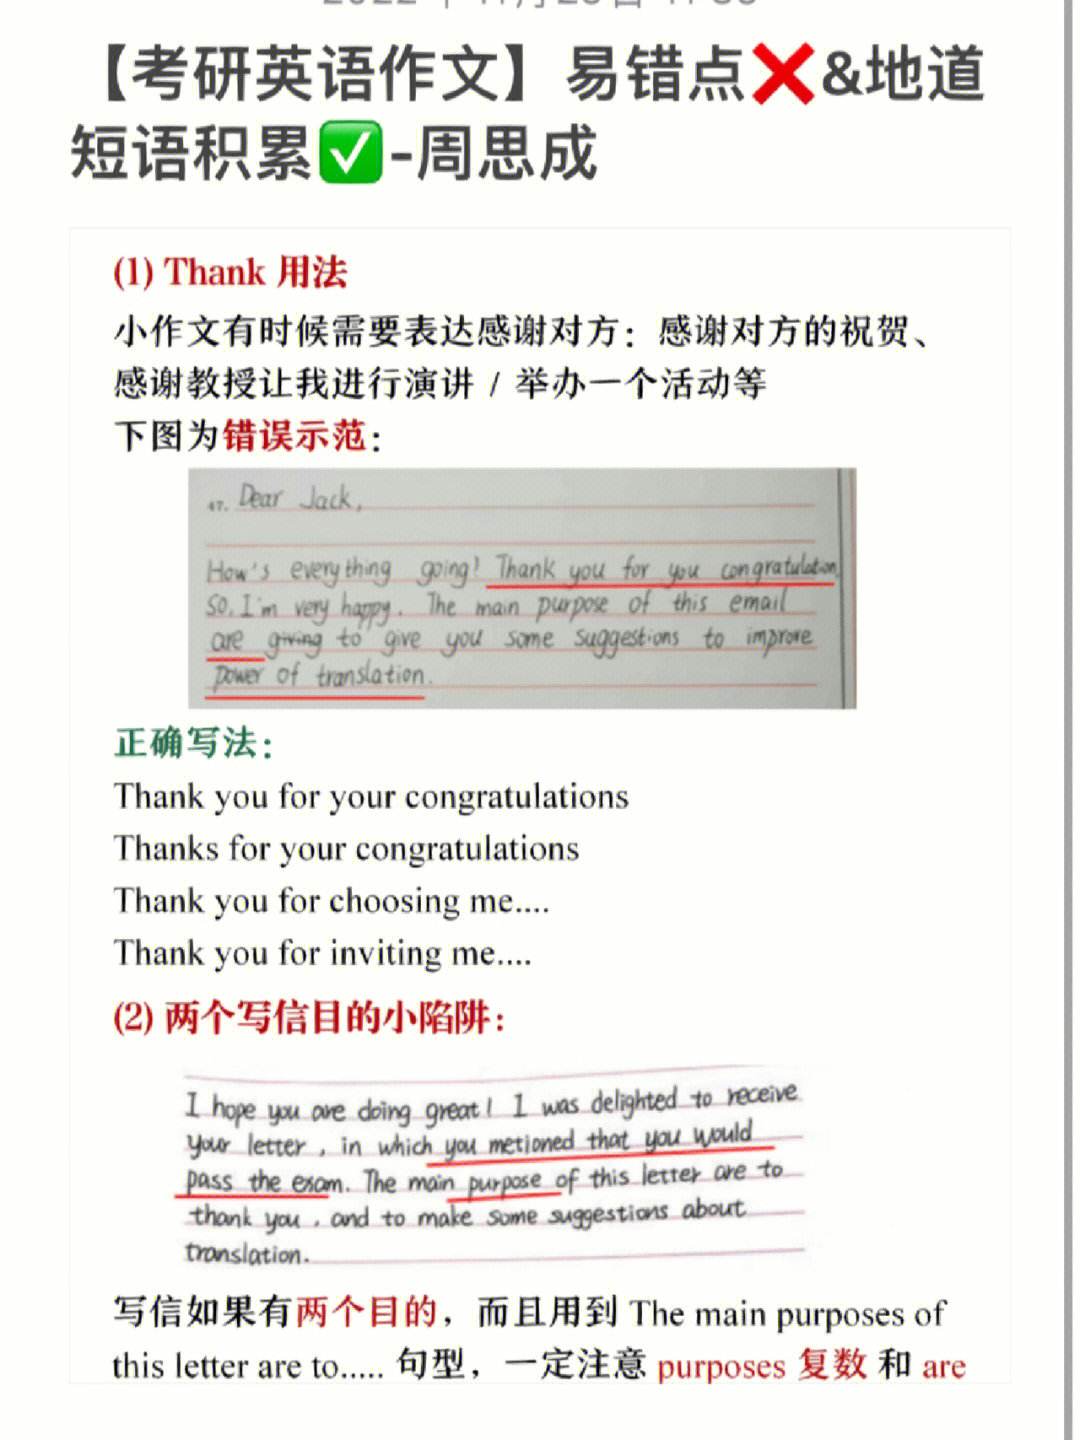 【考研英语作文】易错点❌&地道
短语积累✅-周思成
(1) Thank 用法
小作文有时候需要表达感谢对方：感谢对方的祝贺、
感谢教授让我进行演讲 / 举办一个活动等
下图为错误示范：
47. Dear Jack,
How's everything going! Thank you for you congratulation.
So, I'm very happy. The main purpose of this email
are giving to give you some suggestions to improve
power of translation.
正确写法：
Thank you for your congratulations
Thanks for your congratulations
Thank you for choosing me....
Thank you for inviting me....
(2) 两个写信目的小陷阱：
I hope you are doing great! I was delighted to receive
your letter, in which you metioned that you would
pass the exam. The main purpose of this letter are to
thank you, and to make some suggestions about
translation.
写信如果有两个目的，而且用到 The main purposes of
this letter are to..... 句型，一定注意 purposes 复数 和 are